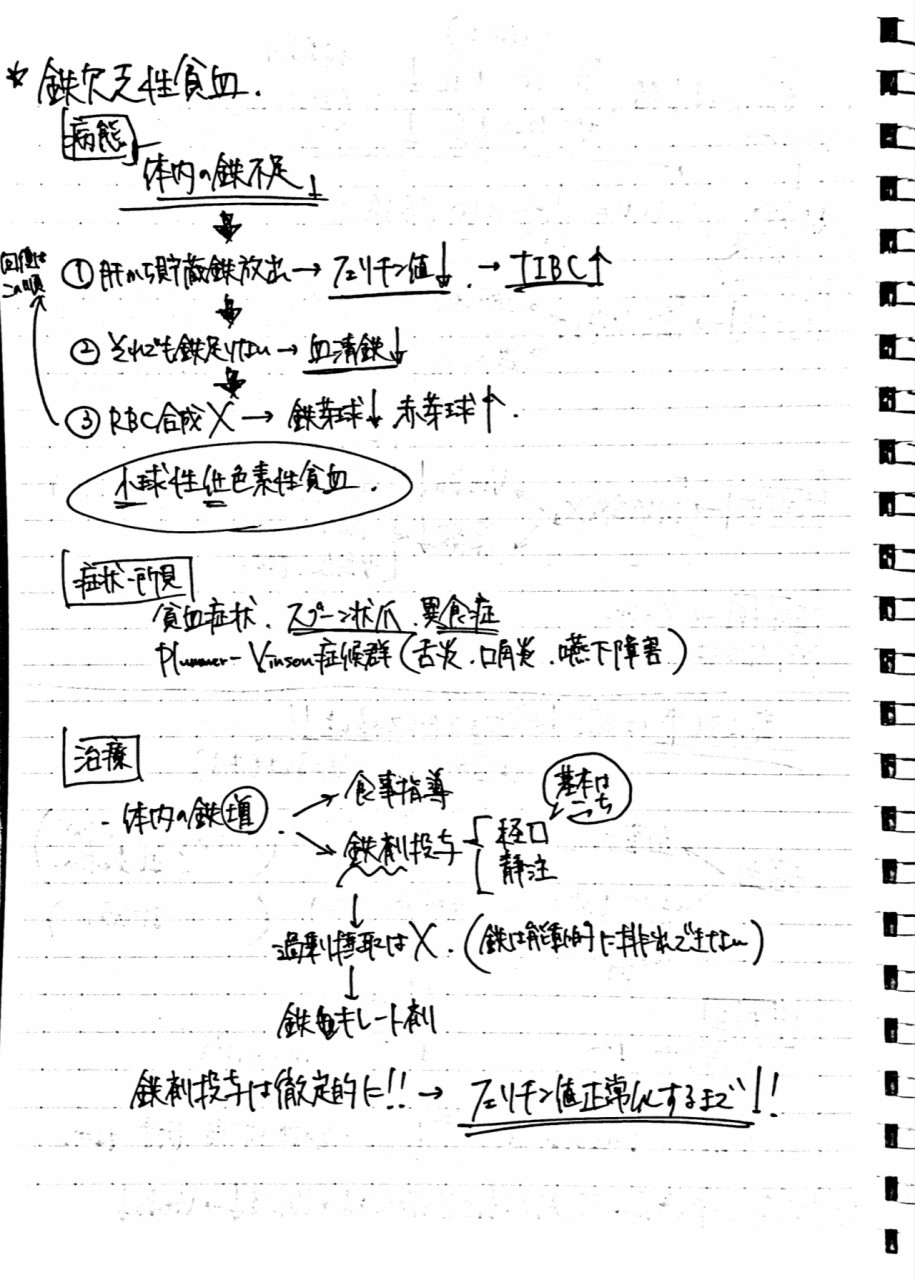 * 鉄欠乏性貧血.
病態
体内の鉄不足↓
① 肝から貯蔵鉄放出→フェリチン値↓. → TIBC↑
回復は
この順
② それでも鉄足りない→血清鉄↓
③ RBC合成X → 鉄芽球↓ 赤芽球↑.
小球性低色素性貧血.
症状・所見
貧血症状.スプーン状爪.異食症
Plummer-Vinson症候群(舌炎.口角炎.嚥下障害)
治療
- 体内の鉄増.
→食事指導
→鉄剤投与
基本は
こっち
経口
静注
↓
過剰摂取はX.(鉄は能動的に排出できない)
↓
鉄キレート剤
鉄剤投与は徹定的に!!→フェリチン値正常化するまで!!